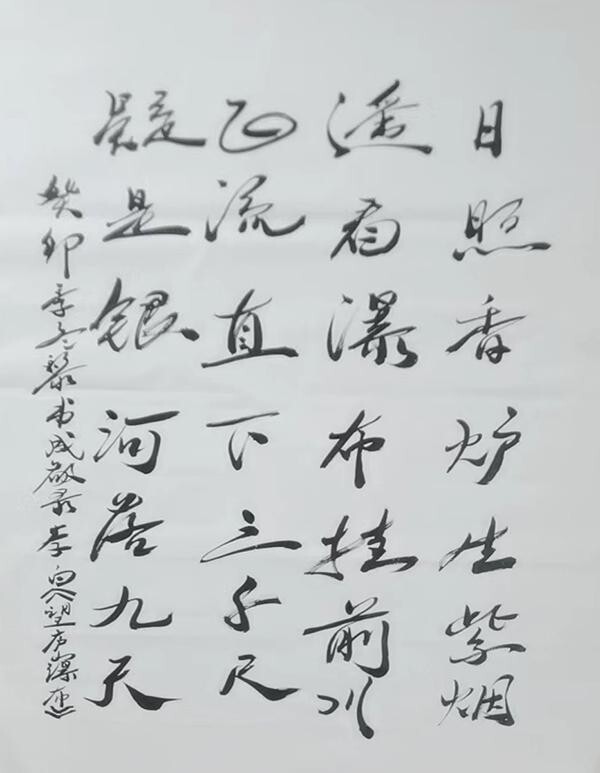 日照香炉生紫烟
遥看瀑布挂前川
飞流直下三千尺
疑是银河落九天
癸卯季冬书成敬录李白望庐